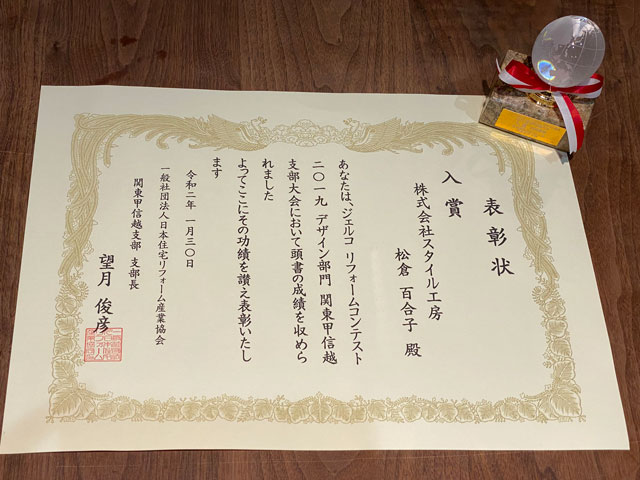 表彰状
入賞
株式会社スタイル工房
松倉 百合子 殿
あなたは、ジェルコ リフォームコンテスト
二〇一九 デザイン部門 関東甲信越
支部大会において頭書の成績を収めら
れました
よってここにその功績を讃え表彰いたし
ます
令和二年 一月三〇日
一般社団法人日本住宅リフォーム産業協会
関東甲信越支部 支部長
望月 俊彦